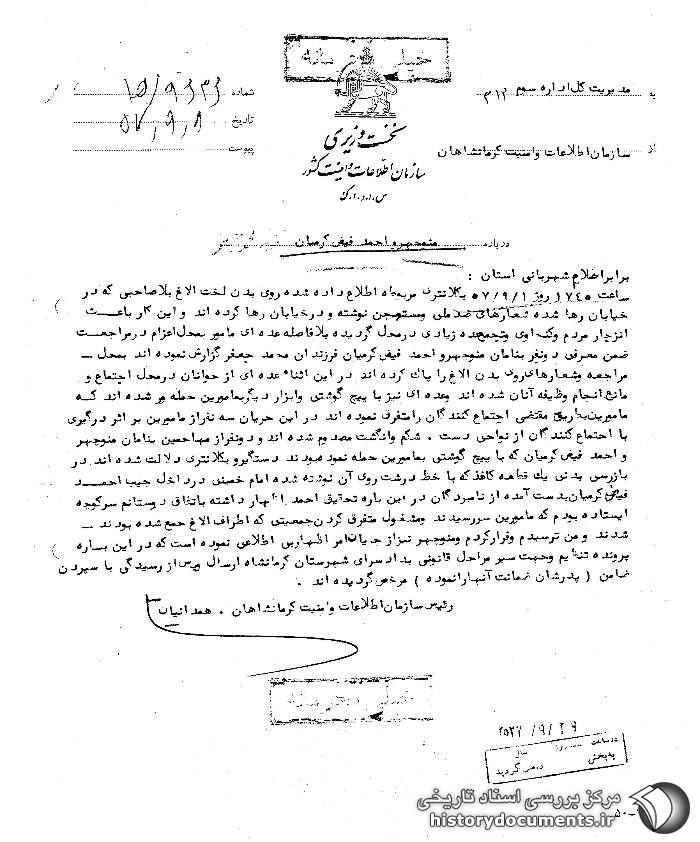 خیلی محرمانه
به مدیریت کل اداره سوم ۳۱۲
شماره ۱۵/۹۶۳۳
تاریخ ۵۷/۹/۸
پیوست
از سازمان اطلاعات و امنیت کرمانشاهان
نخست وزیری
سازمان اطلاعات و امنیت کشور
س.ا.و.ا.ک
درباره منوچهر و احمد فیض کرمیان
برابر اعلام شهربانی استان :
ساعت ۱۷۴۰ روز ۵۷/۹/۱ بکلانتری مربوطه اطلاع داده شده روی بدن لخت الاغ بلاصاحبی که در
خیابان رها شده شعارهای ضد ملی و مستهجن نوشته و در خیابان رها کرده اند و این کار باعث
انزجار مردم و کنجکاوی و تجمع عده زیادی در محل گردیده بلافاصله عده ای مامور بمحل اعزام در مراجعت
ضمن معرفی دو نفر بنامان منوچهر و احمد فیض کرمیان فرزندان محمد جعفر گزارش نموده اند بمحل ـ
مراجعه و شعارهای روی بدن الاغ را پاک کرده اند در این اثناء عده ای از جوانان در محل اجتماع و
مانع انجام وظیفه آنان شده اند وعده ای نیز با پیچ گوشتی و ابزار دیگر بمامورین حمله ور شده اند که
مامورین بطریق مقتضی اجتماع کنندگان را متفرق نموده اند در این جریان سه نفر از مامورین بر اثر درگیری
با اجتماع کنندگان از نواحی دست ، شکم و انگشت مصدوم شده اند و دو نفر از مهاجمین بنامان منوچهر
و احمد فیض کرمیان که با پیچ گوشتی بمامورین حمله نموده بودند دستگیر و بکلانتری دلالت شده اند در
بازرسی بدنی یک قطعه کاغذ که با خط درشت روی آن نوشته شده امام خمینی در داخل جیب احمد
فیض کرمیان بدست آمده از نامبردگان در این باره تحقیق احمد اظهار داشته باتفاق دوستانم سر کوچه
ایستاده بودم که مامورین سر رسیدند و مشغول متفرق کردن جمعیتی که اطراف الاغ جمع شده بودند ـ
شدند و من ترسیدم و فرار کردم و منوچهر نیز از جریان امر اظهار بی اطلاعی نموده است که در این باره
پرونده تنظیم و جهت سیر مراحل قانونی بدادسرای شهرستان کرمانشاه ارسال و پس از رسیدگی با سپردن
ضامن ( پدرشان ضمانت آنها را نموده ) مرخص گردیده اند .
رئیس سازمان اطلاعات و امنیت کرمانشاهان . همدانیان
خیلی محرمانه
۲۵۳۷/۹/۲۹
در ساعت روز سال
به بخش
گردید
مرکز بررسی اسناد تاریخی
historydocuments.ir